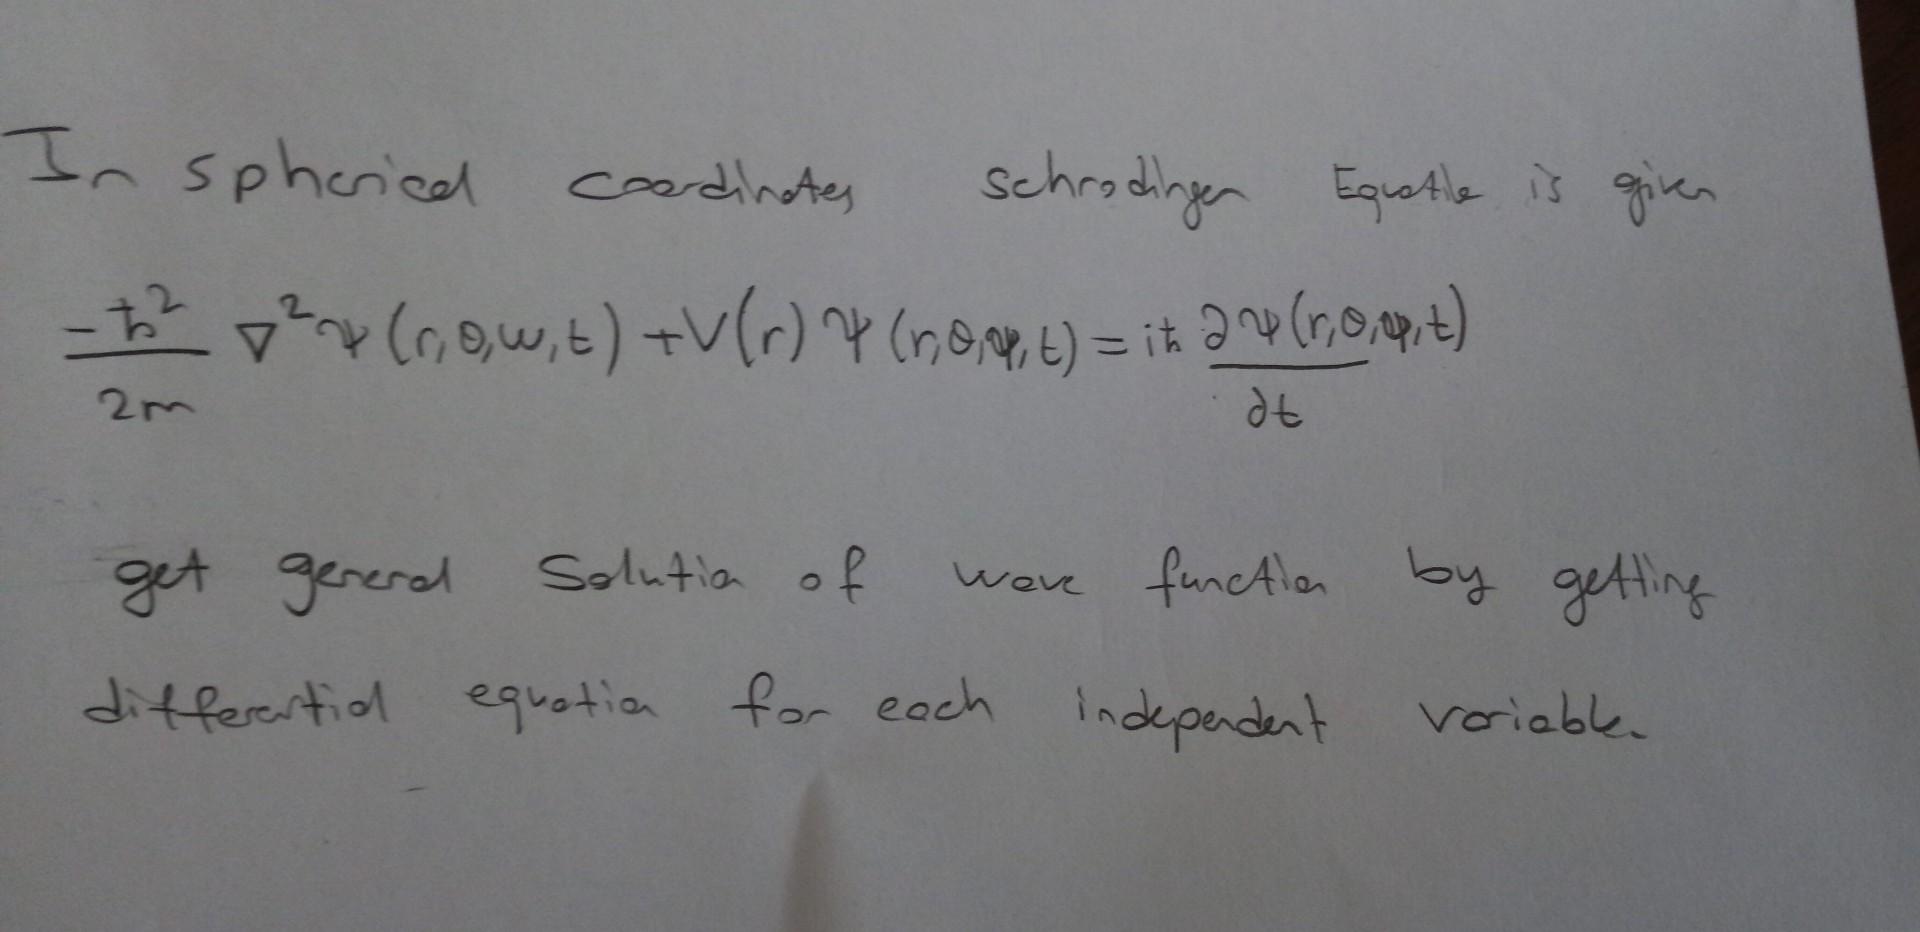 In spherical coordinates schrodinger Equation is given
-ħ²/2m ∇²ψ(r,θ,w,t) + V(r) ψ(r,θ,φ,t) = iħ ∂ψ(r,θ,φ,t)/∂t
get general solution of wave function by getting
differential equation for each independent variable.